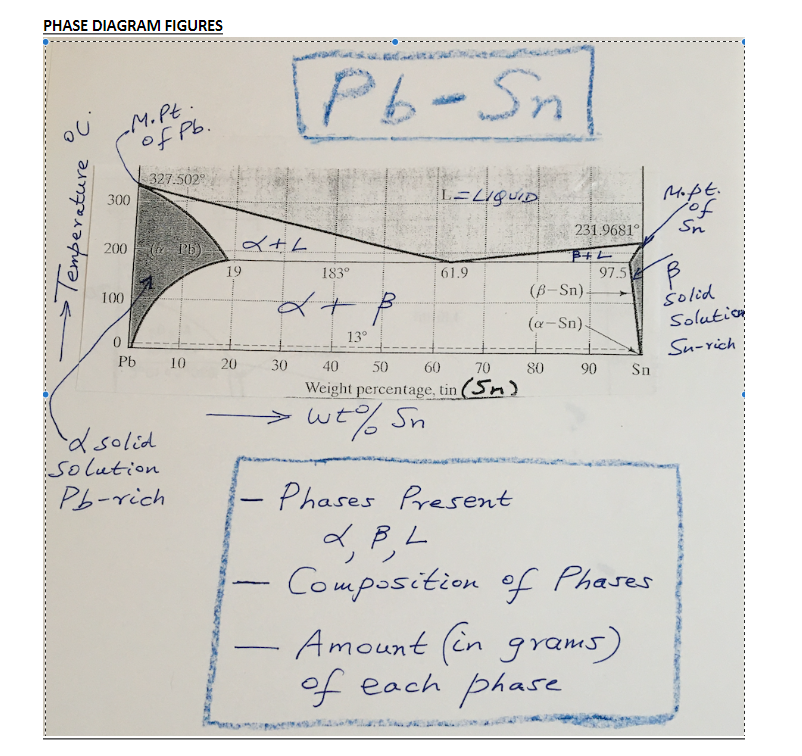 PHASE DIAGRAM FIGURES
Pb-Sn
Temperature °C.
M.Pt.
of Pb.
327.502°
L=LIQUID
M.pt.
of
Sn
231.9681°
300
200
100
0
(α Pb)
α+L
β+L
19
183°
61.9
97.5
α + β
(β–Sn)
(α–Sn)
13°
β
Solid
Solution
Sn-rich
Pb
10
20
30
40
50
60
70
80
90
Sn
Weight percentage, tin (Sn)
wt% Sn
α solid
solution
Pb-rich
— Phases Present
α, β, L
— Composition of Phases
— Amount (in grams)
of each phase